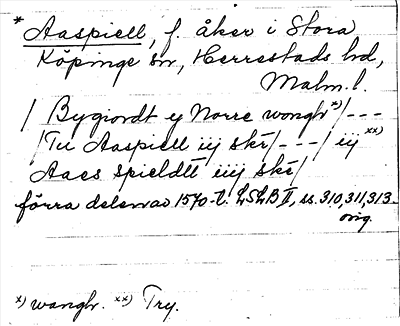 * Aaspiell, f. åker i Stora
Köpinge sn, Herrestads hd,
Malm. l.
/ Bygiordt ij Norre wongh x)/---
/ Tu Aaspiell iij skr/---/ iij xx)
Aaes spieldtt iiij skr/
förra delen av 1570-t. LSLB II, ss. 310, 311, 313.
orig.
x) wangh. xx) Try.